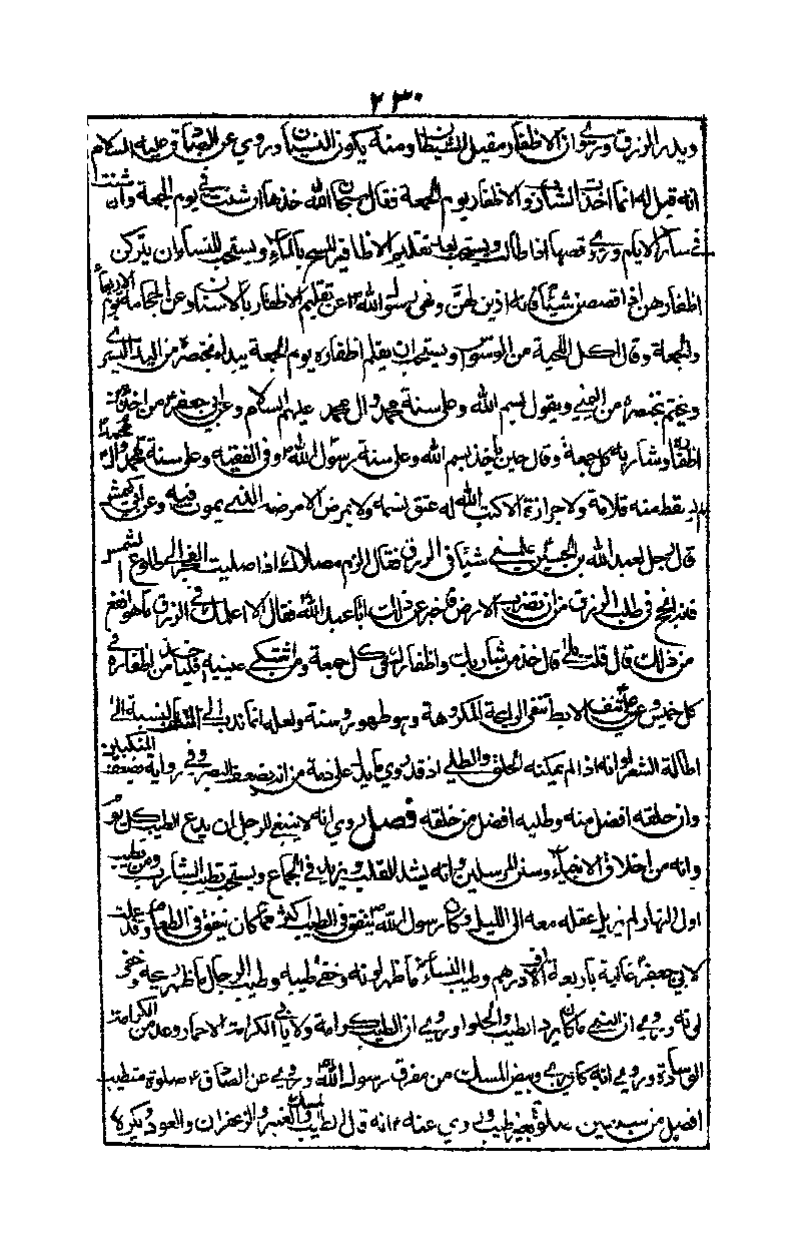 ٢٣٠
ويدر الرزق وروي ان الاظفار مقيل الشيطان ومنه يكون النسيان وروي عن الصادق عليه السلام
انه قيل له انما اخذ الشارب والاظفار يوم الجمعة فقال سبحان الله خذها ان شئت في يوم الجمعة وان شئت
في سائر الايام وروي قصها اذا طالت ويستحب بعد تقليم الاظافير المسح بالماء ويستحب للنساء ان يتركن
اظفارهن اذن لهن ونهى رسول الله ص عن تقليم الاظفار بالاسنان وعن الحجامة يوم الاربعاء
والجمعة وقال اللحية من الوسواس ويستحب ان يقلم اظفاره يوم الجمعة يبداء بخنصره من اليد اليسرى
ويختم بخنصره من اليمنى ويقول بسم الله وعلى سنة محمد وال محمد عليهم السلام وعن ابي جعفر ع من اخذ من
اظفاره وشاربه كل جمعة وقال حين ياخذ بسم الله وعلى سنة رسول الله ص وفي الفقيه وعلى سنة محمد وال محمد
لم يسقط منه قلامة ولا جزازة الا كتب الله له عتق نسمة ولا يمرض الا مرضه الذي يموت فيه وعن ابي كهمش
قال رجل لعبد الله بن الحسن علمني شيئا في الرزق فقال الزم مصلاك اذا صليت الفجر الى طلوع الشمس
فانه انجح في طلب الرزق من ان تضرب الارض فاخبر عن ذلك ابا عبد الله ع فقال الا اعلمك في الرزق ما هو انفع
من ذلك قال قلت بلى قال خذ من شاربك واظفارك في كل جمعة ومن اشتكى عينيه فلياخذ من اظفاره في
كل خميس وعن علي ع نتف الابط تنفي الرايحة المكروهة وهو طهور وسنة ولعله انما ندب الى النتف بالنسبة الى
اطالة الشعر او انه اذا لم يمكنه الحلق والطلي اذ قد روي ما يدل على ذمه من انه يضعف البصر وفي رواية يضعف المنكبين
وان حلقه افضل منه وطليه افضل من حلقه فصل روي انه لا ينبغي للرجل ان يدع الطيب كل يوم
وانه من اخلاق الانبياء وسنن المرسلين وانه يشد القلب ويزيد في الجماع ويستحب تطيب الشارب ومن تطيب
اول النهار لم يزل عقله معه الى الليل وكان رسول الله ص ينفق في الطيب اكثر مما كان ينفق في الطعام وقد عملت
لابي جعفر ع غالية باربعة الاف درهم وطيب النساء ما ظهر لونه وخفي طيبه وطيب الرجال ما ظهر ريحه وخفي
لونه وروي ان النبي ص ما كان يرد الطيب والحلوا وروي ان الطيب كرامة ولا يابى الكرامة الا حمار وعد من الكرامة
الوسادة وروي انه كان يرى وبيض المسك من مفرق رسول الله ص وروي عن الصادق ع صلوة متطيب
افضل من سبعين صلوة بغير طيب وروي عنه ع انه قال الطيب المسك والعنبر والزعفران والعود ويكره